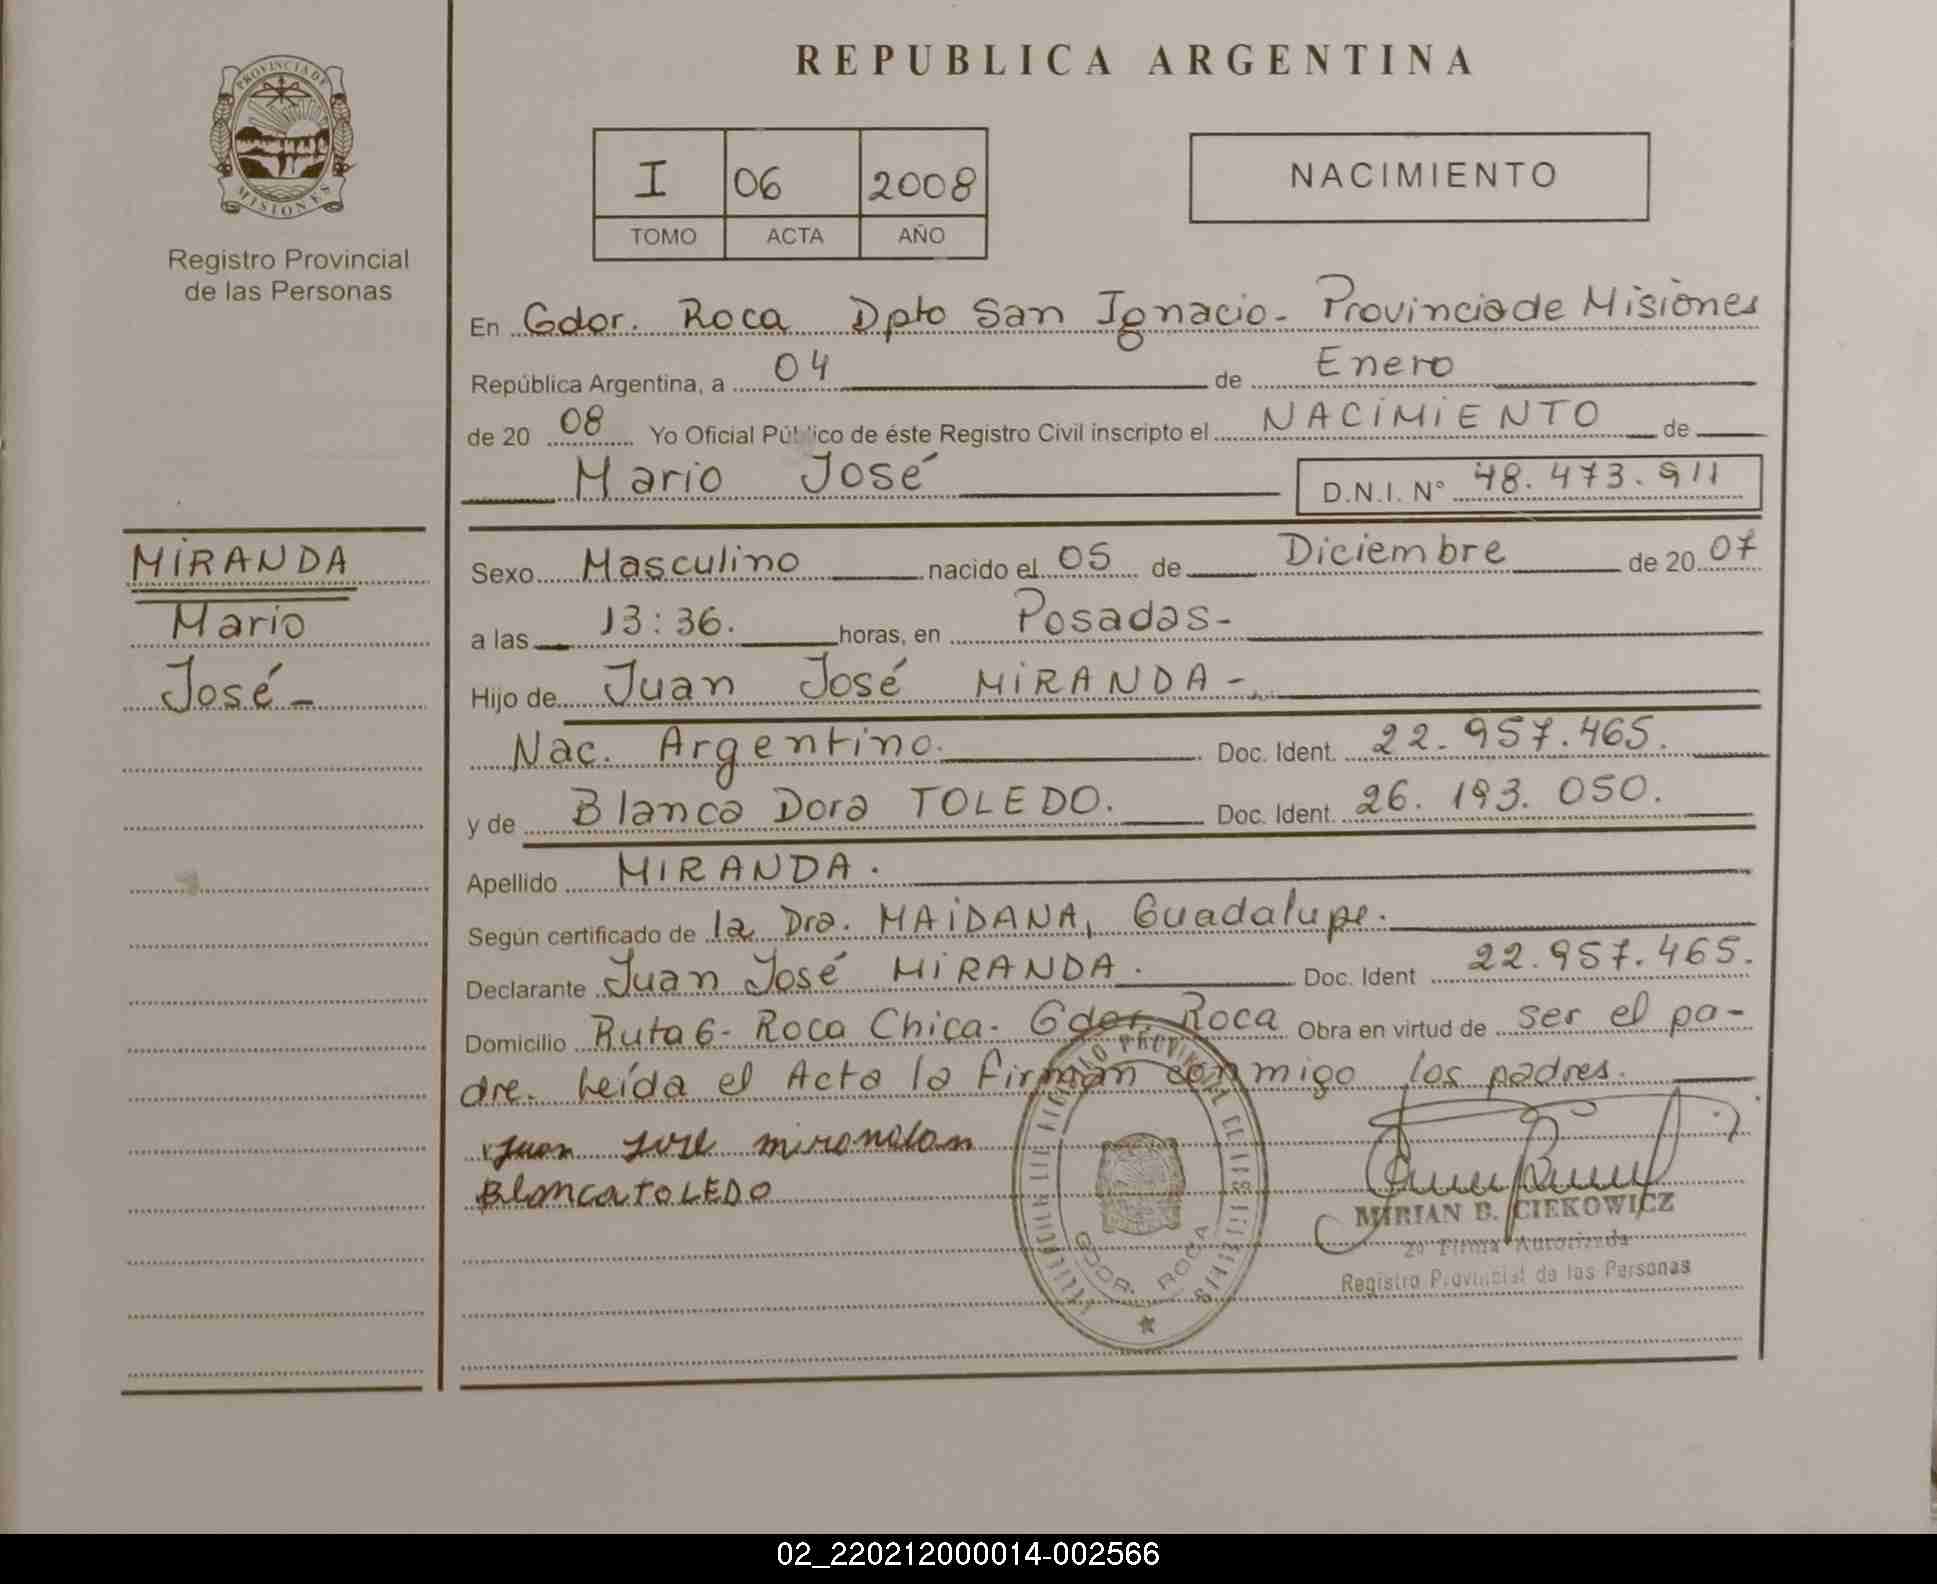 REPUBLICA ARGENTINA
PROVINCIA DE
MISIONES
Registro Provincial
de las Personas
I 06 2008
TOMO ACTA AÑO
NACIMIENTO
En Gdor. Roca Dpto San Ignacio- Provincia de Misiones
República Argentina, a 04 de Enero
de 20 08 Yo Oficial Público de éste Registro Civil inscripto el NACIMIENTO de
Mario José D.N.I. N° 48.473.911
MIRANDA
Mario
José-
Sexo Masculino nacido el 05 de Diciembre de 20 07
a las 13:36. horas, en Posadas-
Hijo de Juan José MIRANDA-
Nac. Argentino. Doc. Ident. 22.957.465.
y de Blanca Dora TOLEDO. Doc. Ident. 26.193.050.
Apellido MIRANDA.
Según certificado de la Dra. MAIDANA, Guadalupe.
Declarante Juan José MIRANDA. Doc. Ident 22.957.465.
Domicilio Ruta 6- Roca Chica- Gdor. Roca Obra en virtud de ser el pa-
dre. Leída el Acta la firman conmigo los padres.
Juan José
Blanca TOLEDO
GDOR. ROCA
MIRIAN B. CIEKOWICZ
2° Firma Autorizada
Registro Provincial de las Personas
02_220212000014-002566